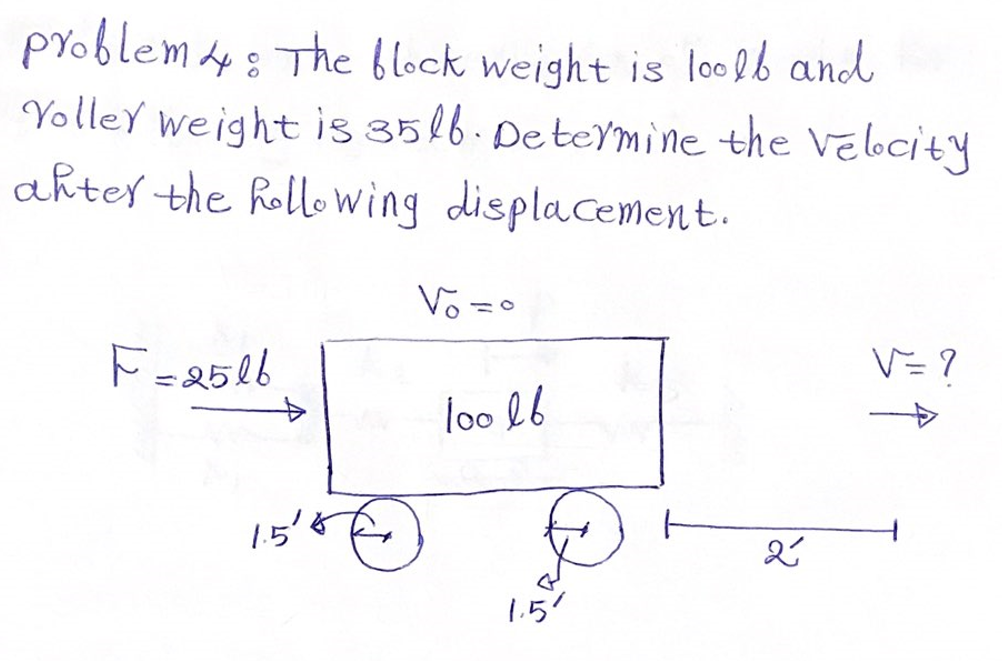 problem 4: The block weight is 100 lb and
roller weight is 35 lb. Determine the velocity
after the following displacement.
V0 = 0
F = 25 lb
V = ?
100 lb
1.5'
2'
1.5'